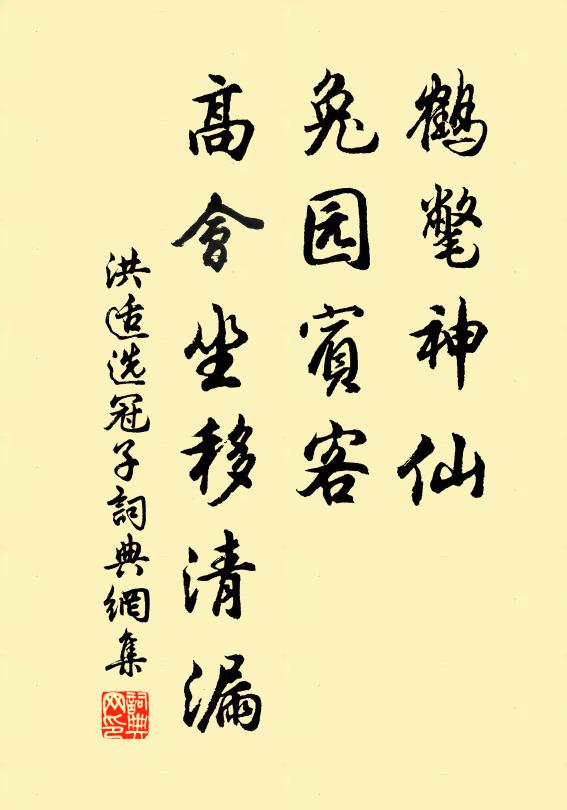 鹤氅神仙
兔园宾客
高會坐移清漏
洪适选冠子詞典網集
詞典网印